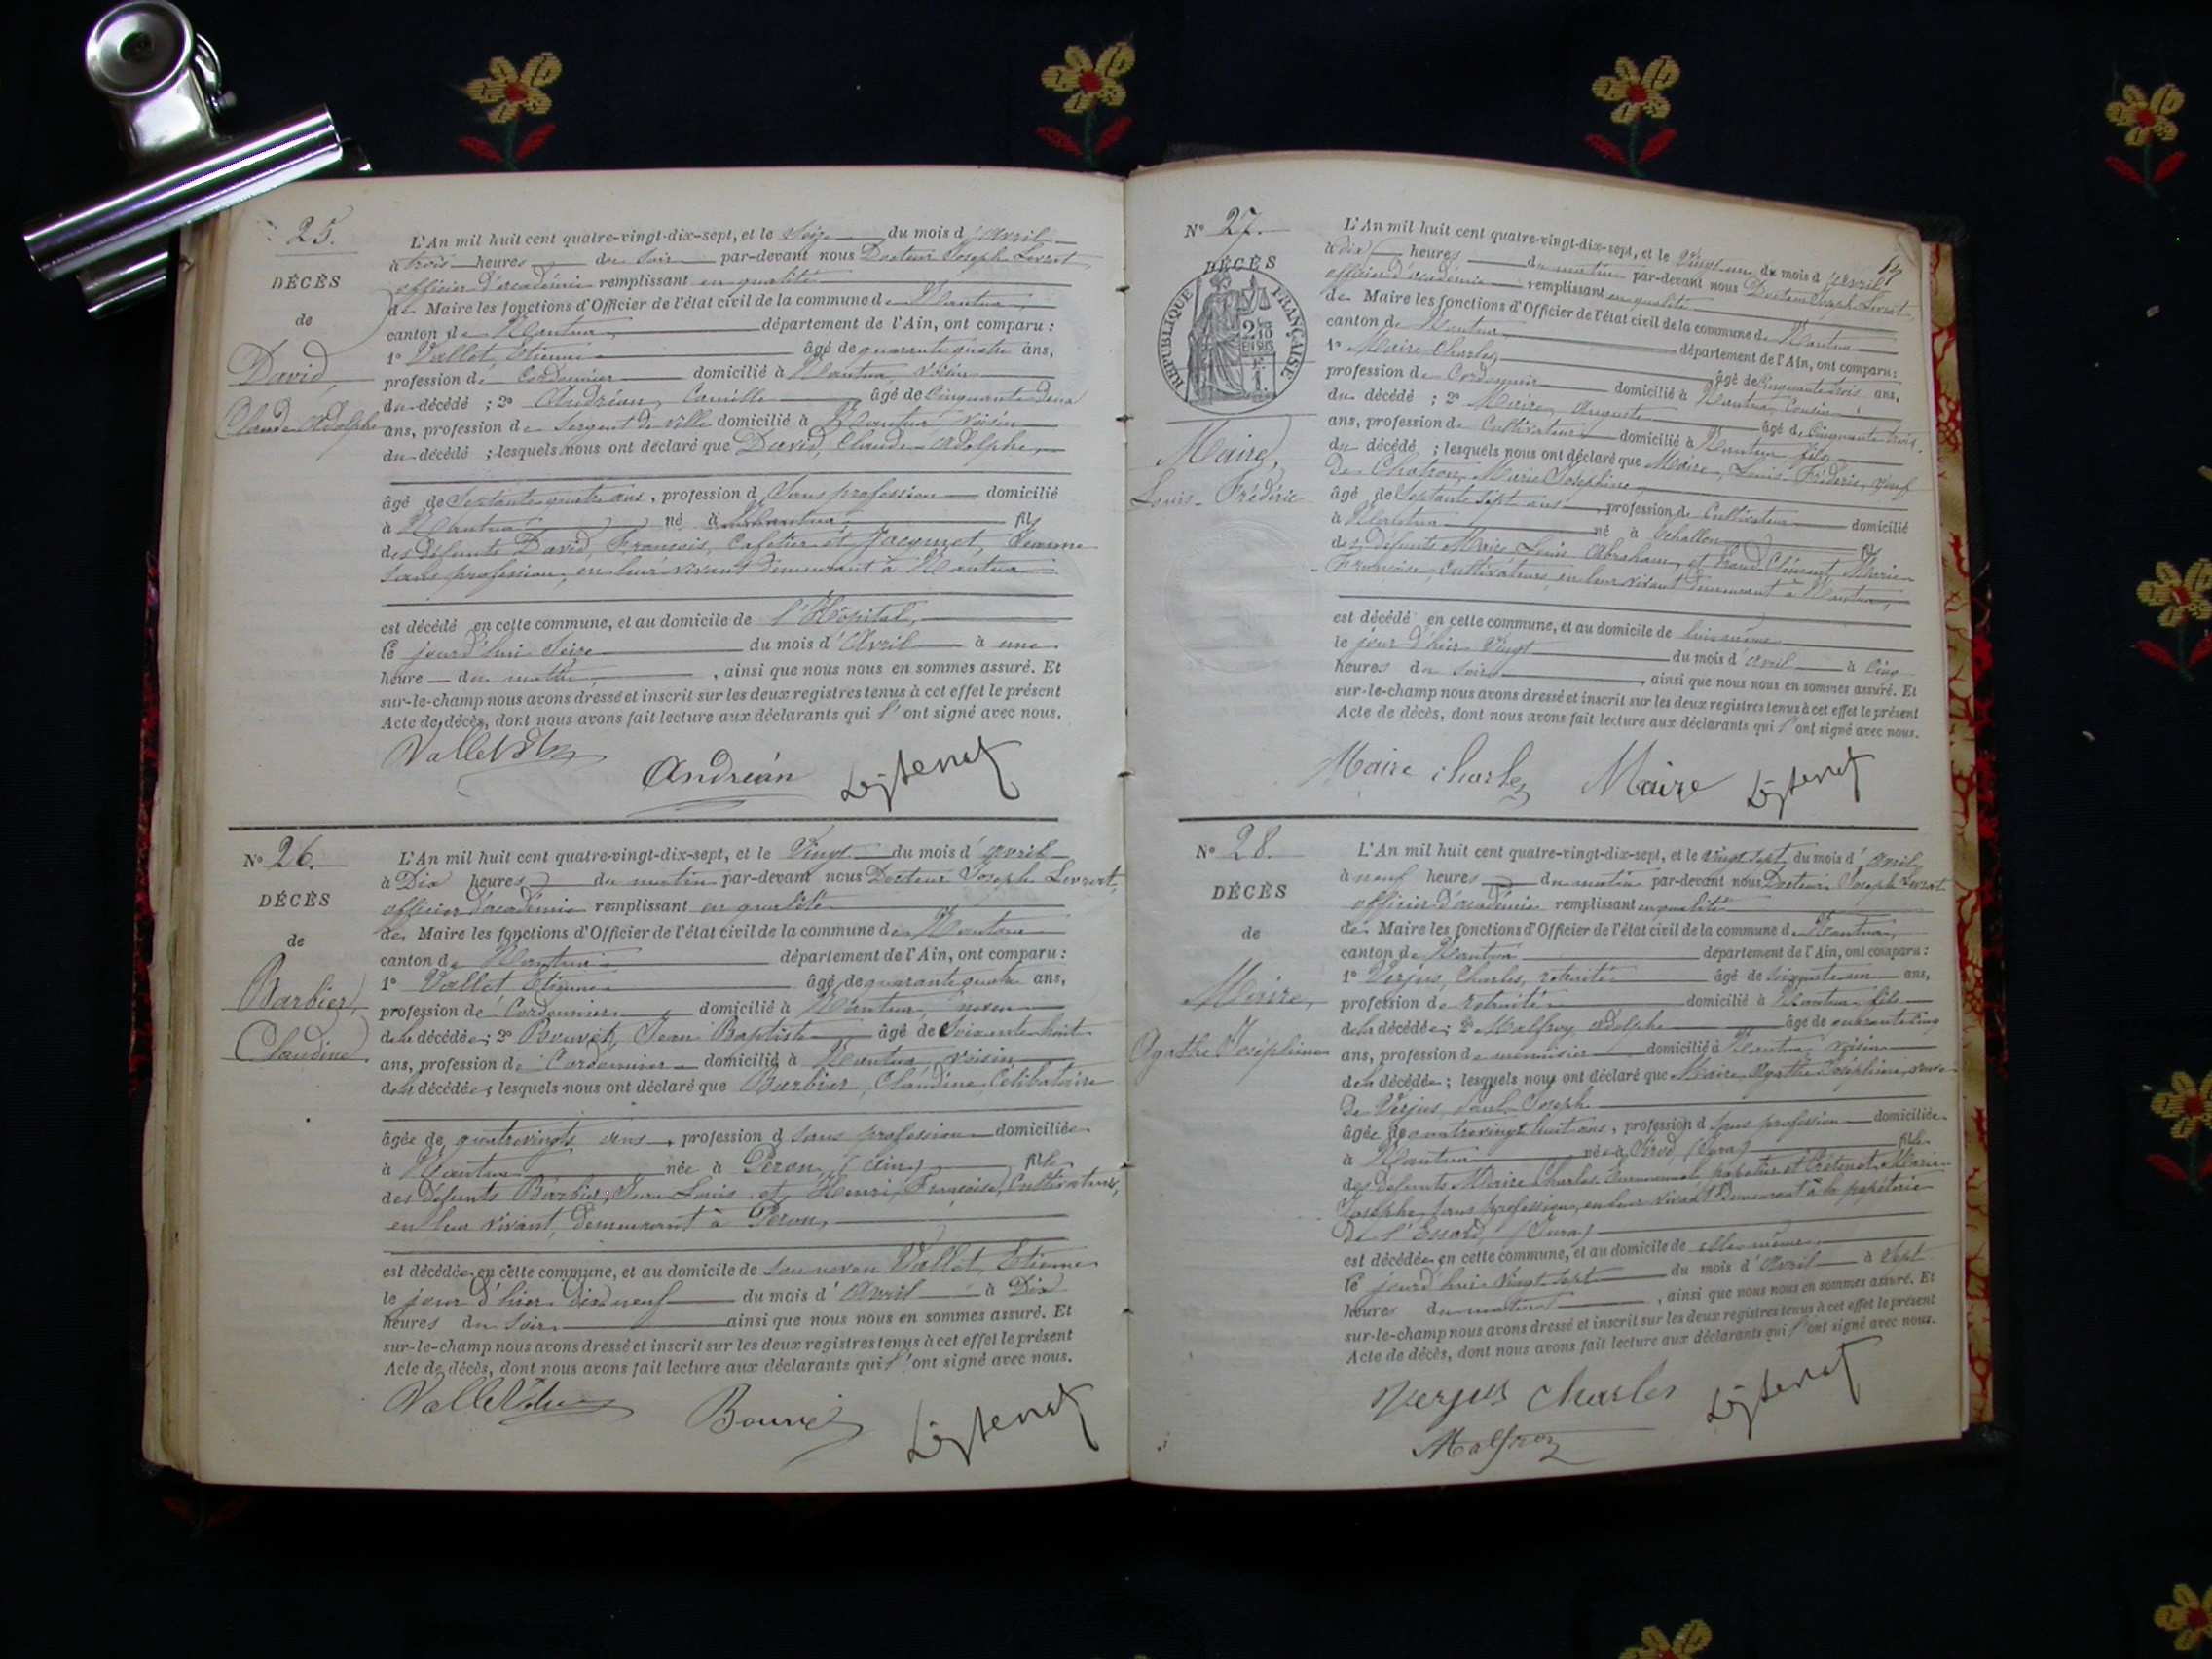 25.
DÉCÈS
de
David,
Claude Adolphe
L'An mil huit cent quatre-vingt-dix-sept, et le Seize du mois d'avril
à trois heures du soir par-devant nous Docteur Joseph Levrat
officier d'académie remplissant en qualité
de Maire les fonctions d'Officier de l'état civil de la commune de Nantua,
canton de Nantua département de l'Ain, ont comparu :
1° Vallet, Etienne âgé de quarante quatre ans,
profession de Cordonnier domicilié à Nantua, voisin
du décédé ; 2° Andréan, Camille âgé de Cinquante deux
ans, profession de Sergent de ville domicilié à Nantua voisin
du décédé ; lesquels nous ont déclaré que David, Claude Adolphe,
âgé de Septante quatre ans, profession d Sans profession domicilié
à Nantua né à Nantua fils
des défunts David, François, Cafetier et Jacquet, Jeanne
sans profession, en leur vivant demeurant à Nantua
est décédé en cette commune, et au domicile de l'Hôpital,
le jour d'hui Seize du mois d'Avril à une
heure du matin, ainsi que nous nous en sommes assuré. Et
sur-le-champ nous avons dressé et inscrit sur les deux registres tenus à cet effet le présent
Acte de décès, dont nous avons fait lecture aux déclarants qui l'ont signé avec nous.
Vallet
Andréan
N° 26.
DÉCÈS
de
Barbier,
Claudine
L'An mil huit cent quatre-vingt-dix-sept, et le Vingt du mois d'avril
à Dix heures du matin par-devant nous Docteur Joseph Levrat,
officier d'académie remplissant en qualité
de Maire les fonctions d'Officier de l'état civil de la commune de Nantua
canton de Nantua département de l'Ain, ont comparu :
1° Vallet Etienne âgé de quarante quatre ans,
profession de Cordonnier domicilié à Nantua, neveu
de la décédée ; 2° Bouvet, Jean Baptiste âgé de Soixante huit
ans, profession de Cordonnier domicilié à Nantua, voisin
de la décédée ; lesquels nous ont déclaré que Barbier, Claudine Célibataire
âgée de quatrevingts ans, profession d sans profession domiciliée
à Nantua née à Péron, (Ain) fille
des défunts Barbier, Jean Louis et Henri, Françoise, Cultivateurs,
en leur vivant, demeurant à Péron,
est décédée en cette commune, et au domicile de son neveu Vallet, Etienne
le jour d'hier dix neuf du mois d'Avril à Dix
heures du soir ainsi que nous nous en sommes assuré. Et
sur-le-champ nous avons dressé et inscrit sur les deux registres tenus à cet effet le présent
Acte de décès, dont nous avons fait lecture aux déclarants qui l'ont signé avec nous.
Vallet
Bouvet
N° 27.
DÉCÈS
RÉPUBLIQUE FRANÇAISE
2/10 EN SUS
Maire,
Louis-Frédéric
L'An mil huit cent quatre-vingt-dix-sept, et le Vingt un du mois d'avril
à dix heures du matin par-devant nous Docteur Joseph Levrat
officier d'académie remplissant en qualité
de Maire les fonctions d'Officier de l'état civil de la commune de Nantua
canton de Nantua département de l'Ain, ont comparu :
1° Maire Charles âgé de Cinquante trois ans,
profession de Cordonnier domicilié à Nantua, Cousin
du décédé ; 2° Maire, Auguste âgé de Cinquante trois
ans, profession de Cultivateur domicilié à Nantua fils
du décédé ; lesquels nous ont déclaré que Maire, Louis-Frédéric, veuf
de Marie Joséphine,
âgé de Septante Sept ans, profession de Cultivateur domicilié
à Nantua né à Echallon fils
des défunts Maire Louis Abraham, et Clément Marie
Françoise, Cultivateurs, en leur vivant demeurant à Nantua,
est décédé en cette commune, et au domicile de lui-même
le jour d'hier Vingt du mois d'avril à Cinq
heures du soir, ainsi que nous nous en sommes assuré. Et
sur-le-champ nous avons dressé et inscrit sur les deux registres tenus à cet effet le présent
Acte de décès, dont nous avons fait lecture aux déclarants qui l'ont signé avec nous.
Maire charles
Maire
N° 28.
DÉCÈS
de
Maire,
Agathe Joséphine
L'An mil huit cent quatre-vingt-dix-sept, et le vingt sept du mois d'avril
à neuf heures du matin par-devant nous Docteur Joseph Levrat
officier d'académie remplissant en qualité
de Maire les fonctions d'Officier de l'état civil de la commune de Nantua,
canton de Nantua département de l'Ain, ont comparu :
1° Verjus, Charles, retraité âgé de soixante un ans,
profession de retraité domicilié à Nantua, fils
de la décédée ; 2° Malfroy Adolphe âgé de quarante cinq
ans, profession de menuisier domicilié à Nantua voisin
de la décédée ; lesquels nous ont déclaré que Maire, Agathe Joséphine, veuve
de Verjus, Paul Joseph
âgée de quatrevingt huit ans, profession d sans profession domiciliée
à Nantua née à Sirod, (Jura) fille
des défunts Maire Charles Emmanuel, papetier et Marie
Josephe, sans profession, en leur vivant demeurant à la papeterie
de l'Essard, (Jura)
est décédée en cette commune, et au domicile de elle-même
le jour d'hui vingt sept du mois d'Avril à Sept
heures du matin, ainsi que nous nous en sommes assuré. Et
sur-le-champ nous avons dressé et inscrit sur les deux registres tenus à cet effet le présent
Acte de décès, dont nous avons fait lecture aux déclarants qui l'ont signé avec nous.
Verjus Charles
Malfroy